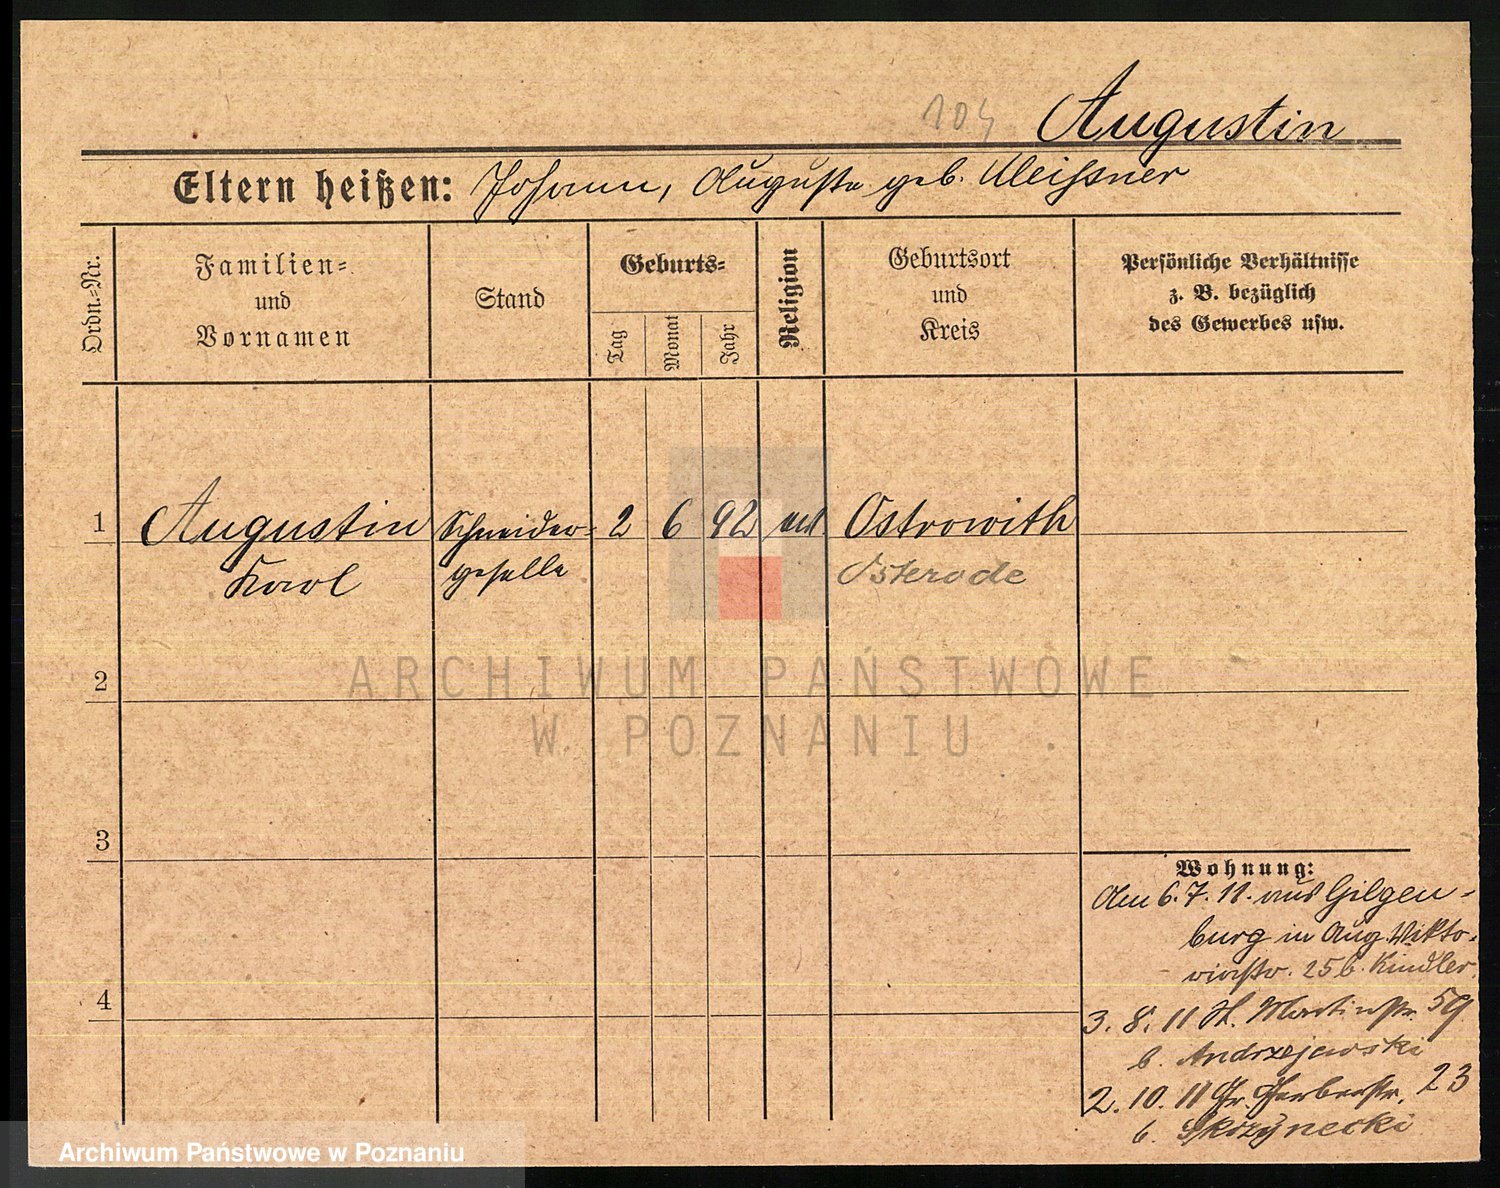 104 Augustin
Eltern heißen: Johann, Auguste geb. Meissner
Ordn=Nr.
Familien=
und
Vornamen
Stand
Geburts=
Tag
Monat
Jahr
Religion
Geburtsort
und
Kreis
Persönliche Verhältnisse
z. B. bezüglich
des Gewerbes usw.
1 Augustin Schneider= 2 6 92 Ostrowith
Karl geselle Osterode
2
3
4
ARCHIWUM PAŃSTWOWE
W POZNANIU
Wohnung:
Am 6.7.11. aus Gilgen=
burg in Aug. Vikto=
riastr. 25 b. Kindler.
3. 8. 11 St. Martinstr. 59
b. Andrzejewski
2. 10. 11 Gr. Gerberstr. 23
b. Skrzynecki
Archiwum Państwowe w Poznaniu